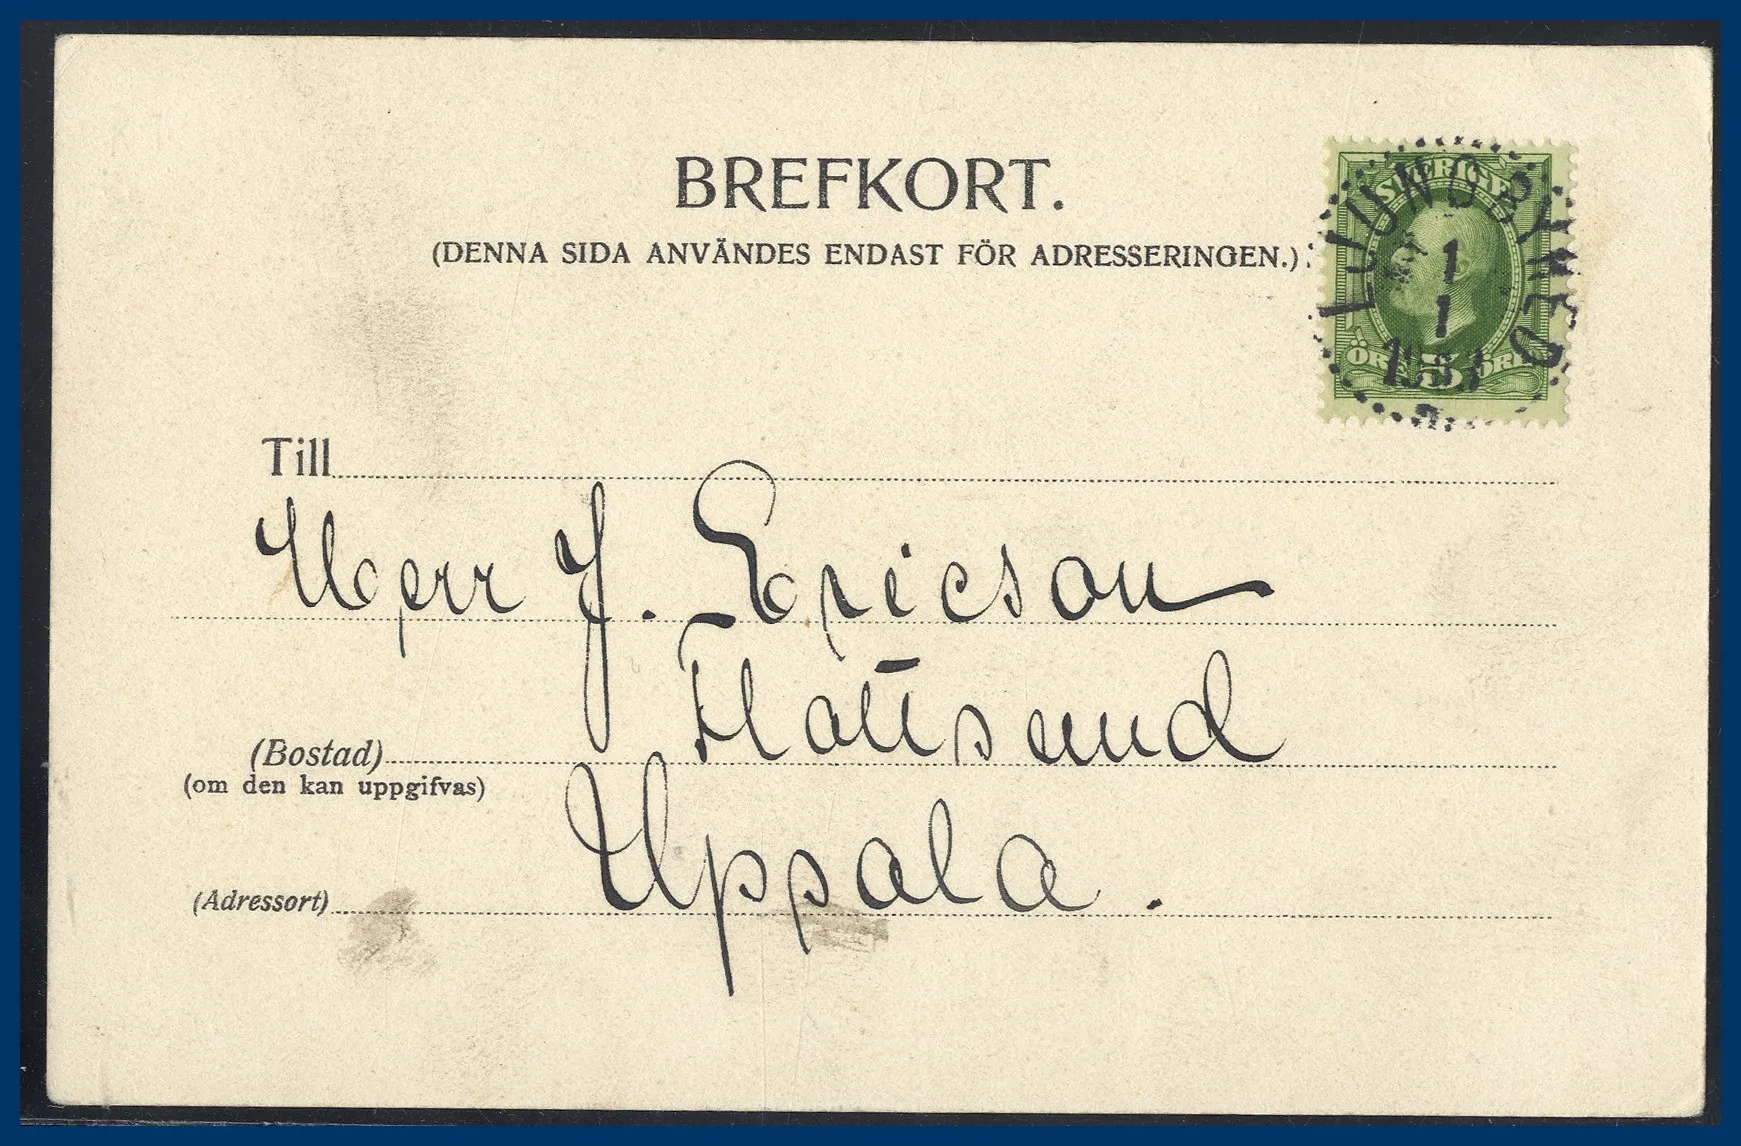 BREFKORT.
(DENNA SIDA ANVÄNDES ENDAST FÖR ADRESSERINGEN.)
SVERIGE
1
1
ÖRE 5 ÖRE
Till
Herr J. Ericson
Flottsund
(Bostad)
(om den kan uppgifvas)
Uppsala.
(Adressort)